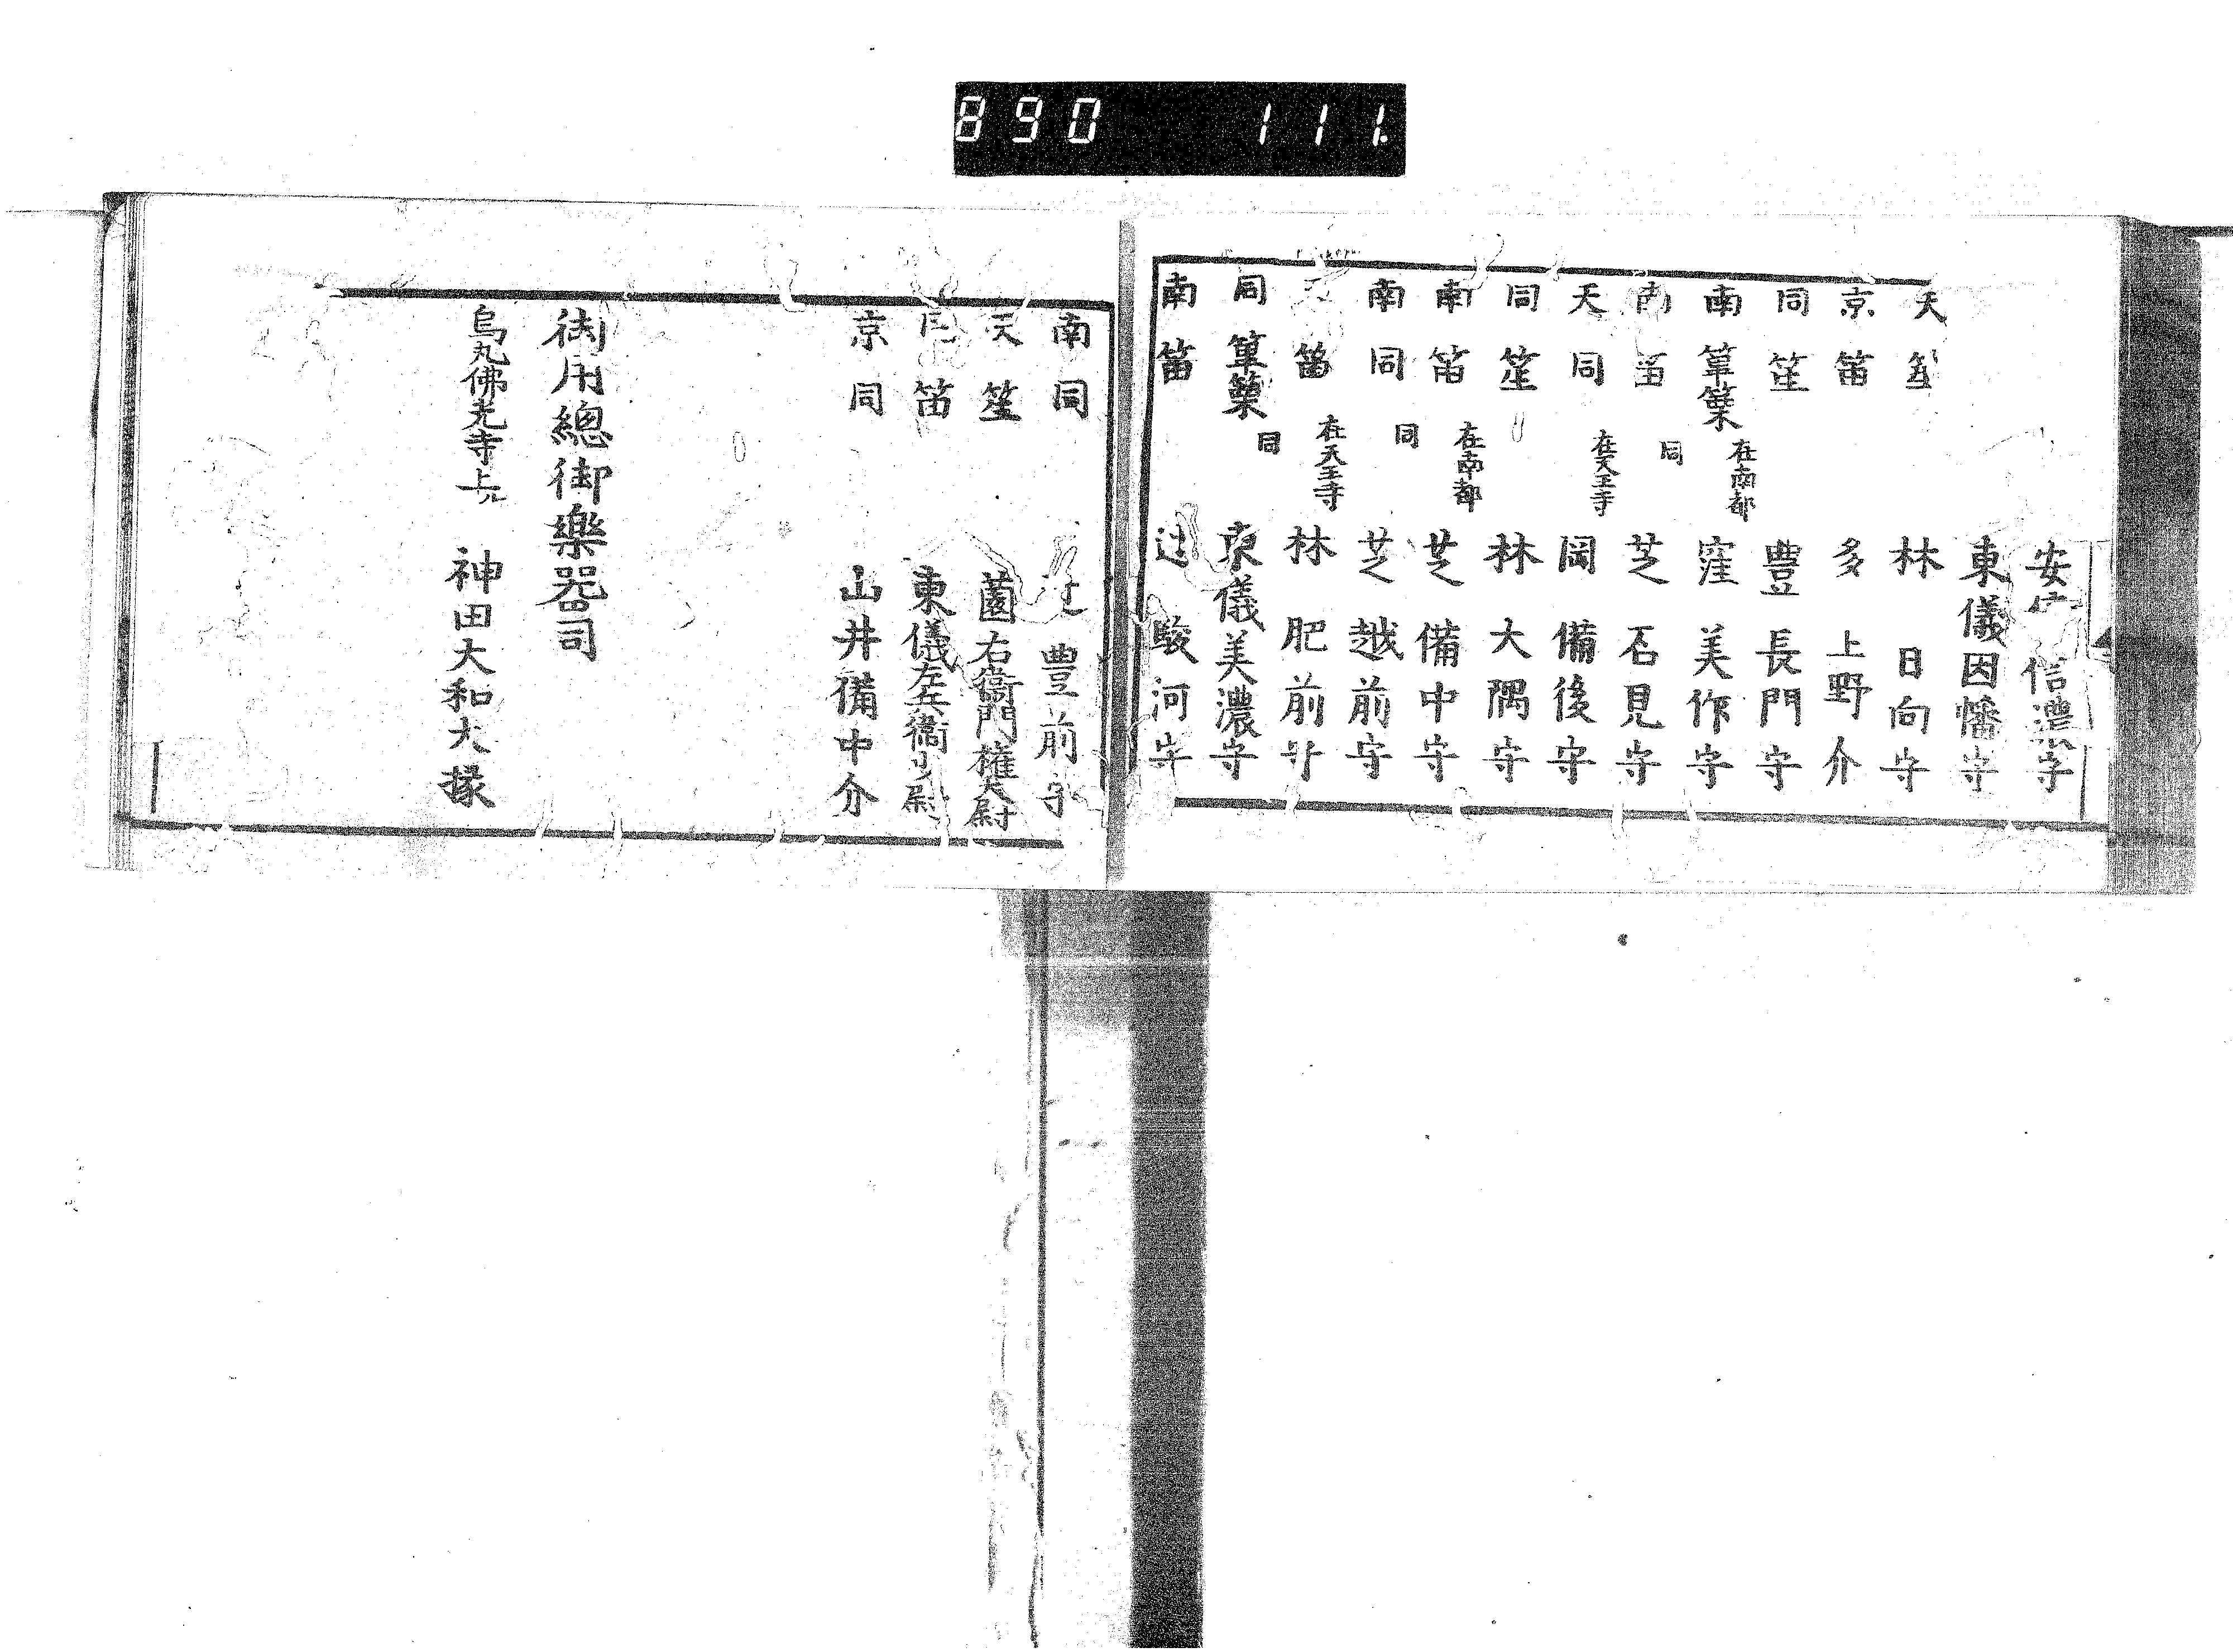 890 111
安 信濃守
東儀因幡守
天 笙 林 日向守
京 笛 多 上野介
同 笙 豐 長門守
南 篳篥 在南都 窪 美作守
南 笛 同 芝 石見守
天 同 在天王寺 岡 備後守
同 笙 林 大隅守
南 笛 在南都 芝 備中守
南 同 同 芝 越前守
笛 在天王寺 林 肥前
同 篳篥 同 東儀美濃守
南 笛 辻 駿河守
南 同 豊前守
天 笙 薗右衞門權大尉
同 笛 東儀左兵衞少尉
京 同 山井備中介
御用總御樂器司
烏丸佛光寺上ル 神田大和大掾